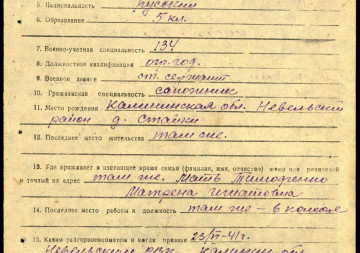 5. Национальность русский
6. Образование 5 кл.
7. Военно-учетная специальность 134
8. Должностная квалификация
9. Военное звание ст. сержант
10. Гражданская специальность сапожник
11. Место рождения Калининская обл. Невельский
район д. Стайки
12. Последнее место жительства там же.
13. Где проживает в настоящее время семья (фамилия, имя, отчество) жены или родителей
и точный их адрес там же. Мать Тимофеенко
Матрена Игнатовна
14. Последнее место работы и должность там же - в колхозе
15. Каким райгорвоенкоматом и когда призван 23/VI-41г.
Невельским рвк Калинин. обл.